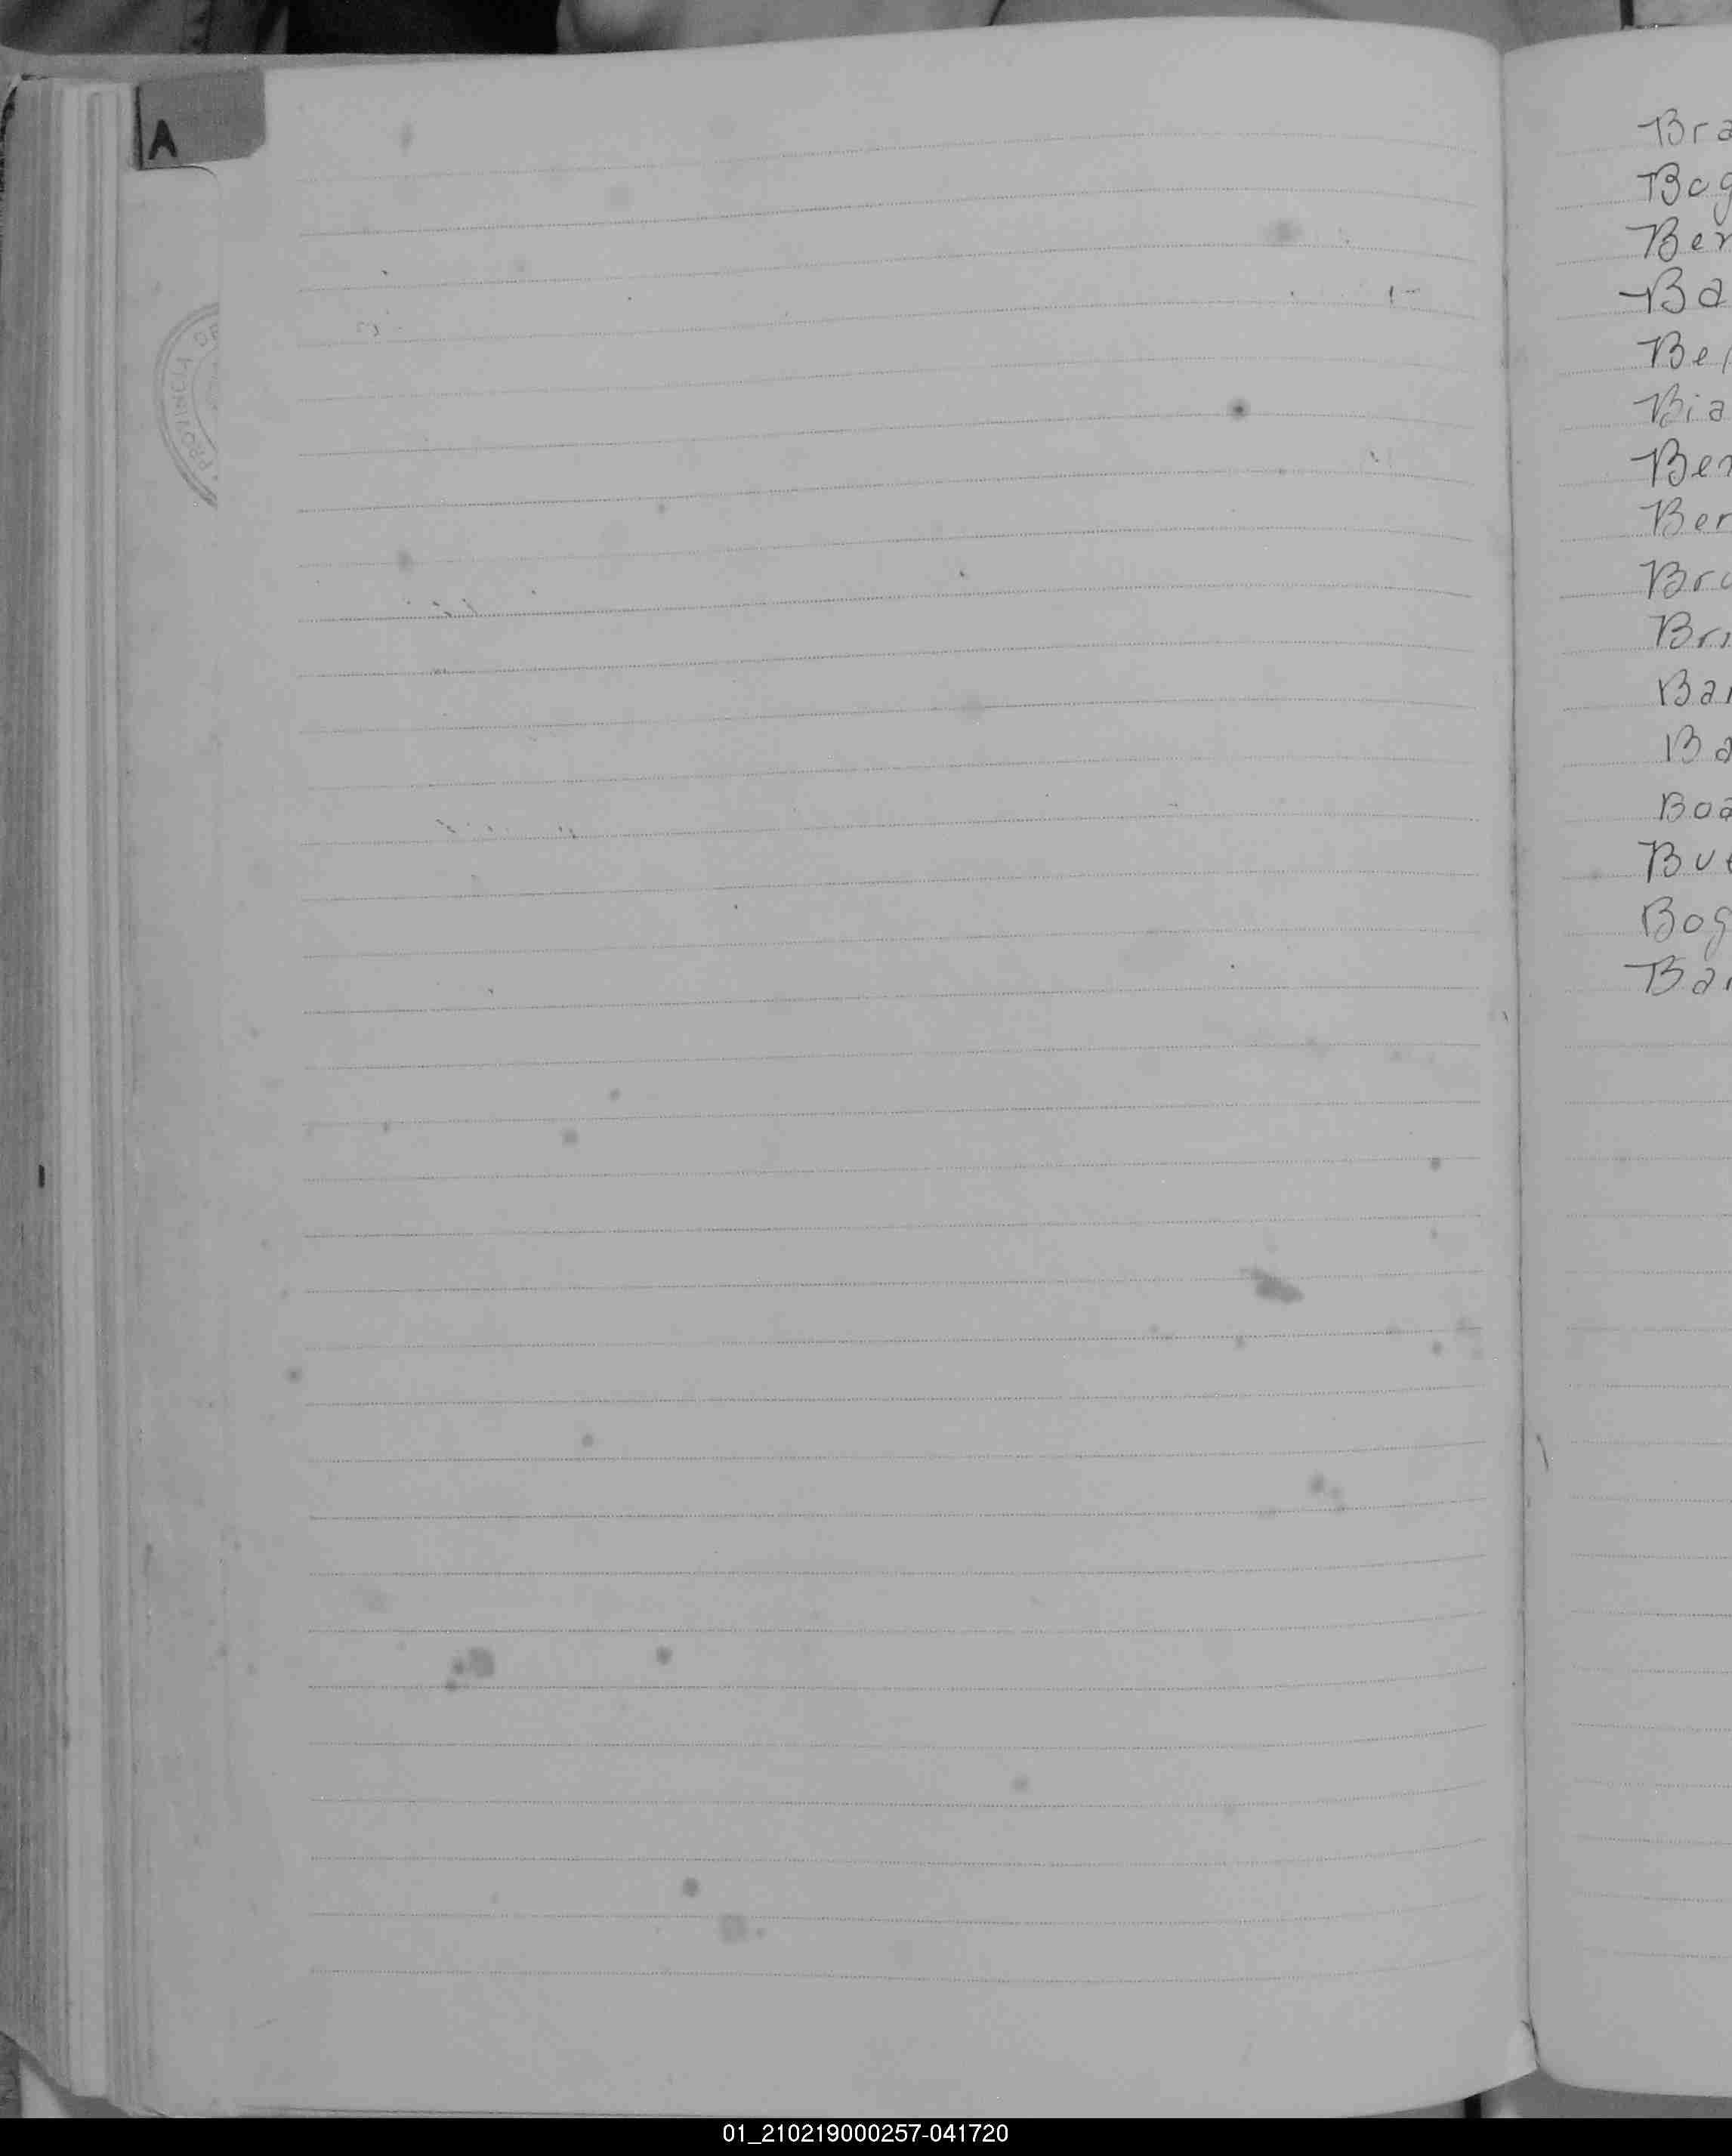 A
PROVINCIA DE
Bra
Bog
Ber
Ba
Be
Bia
Ber
Ber
Bro
Bri
Bar
Ba
Boa
But
Bog
Bar
01_210219000257-041720